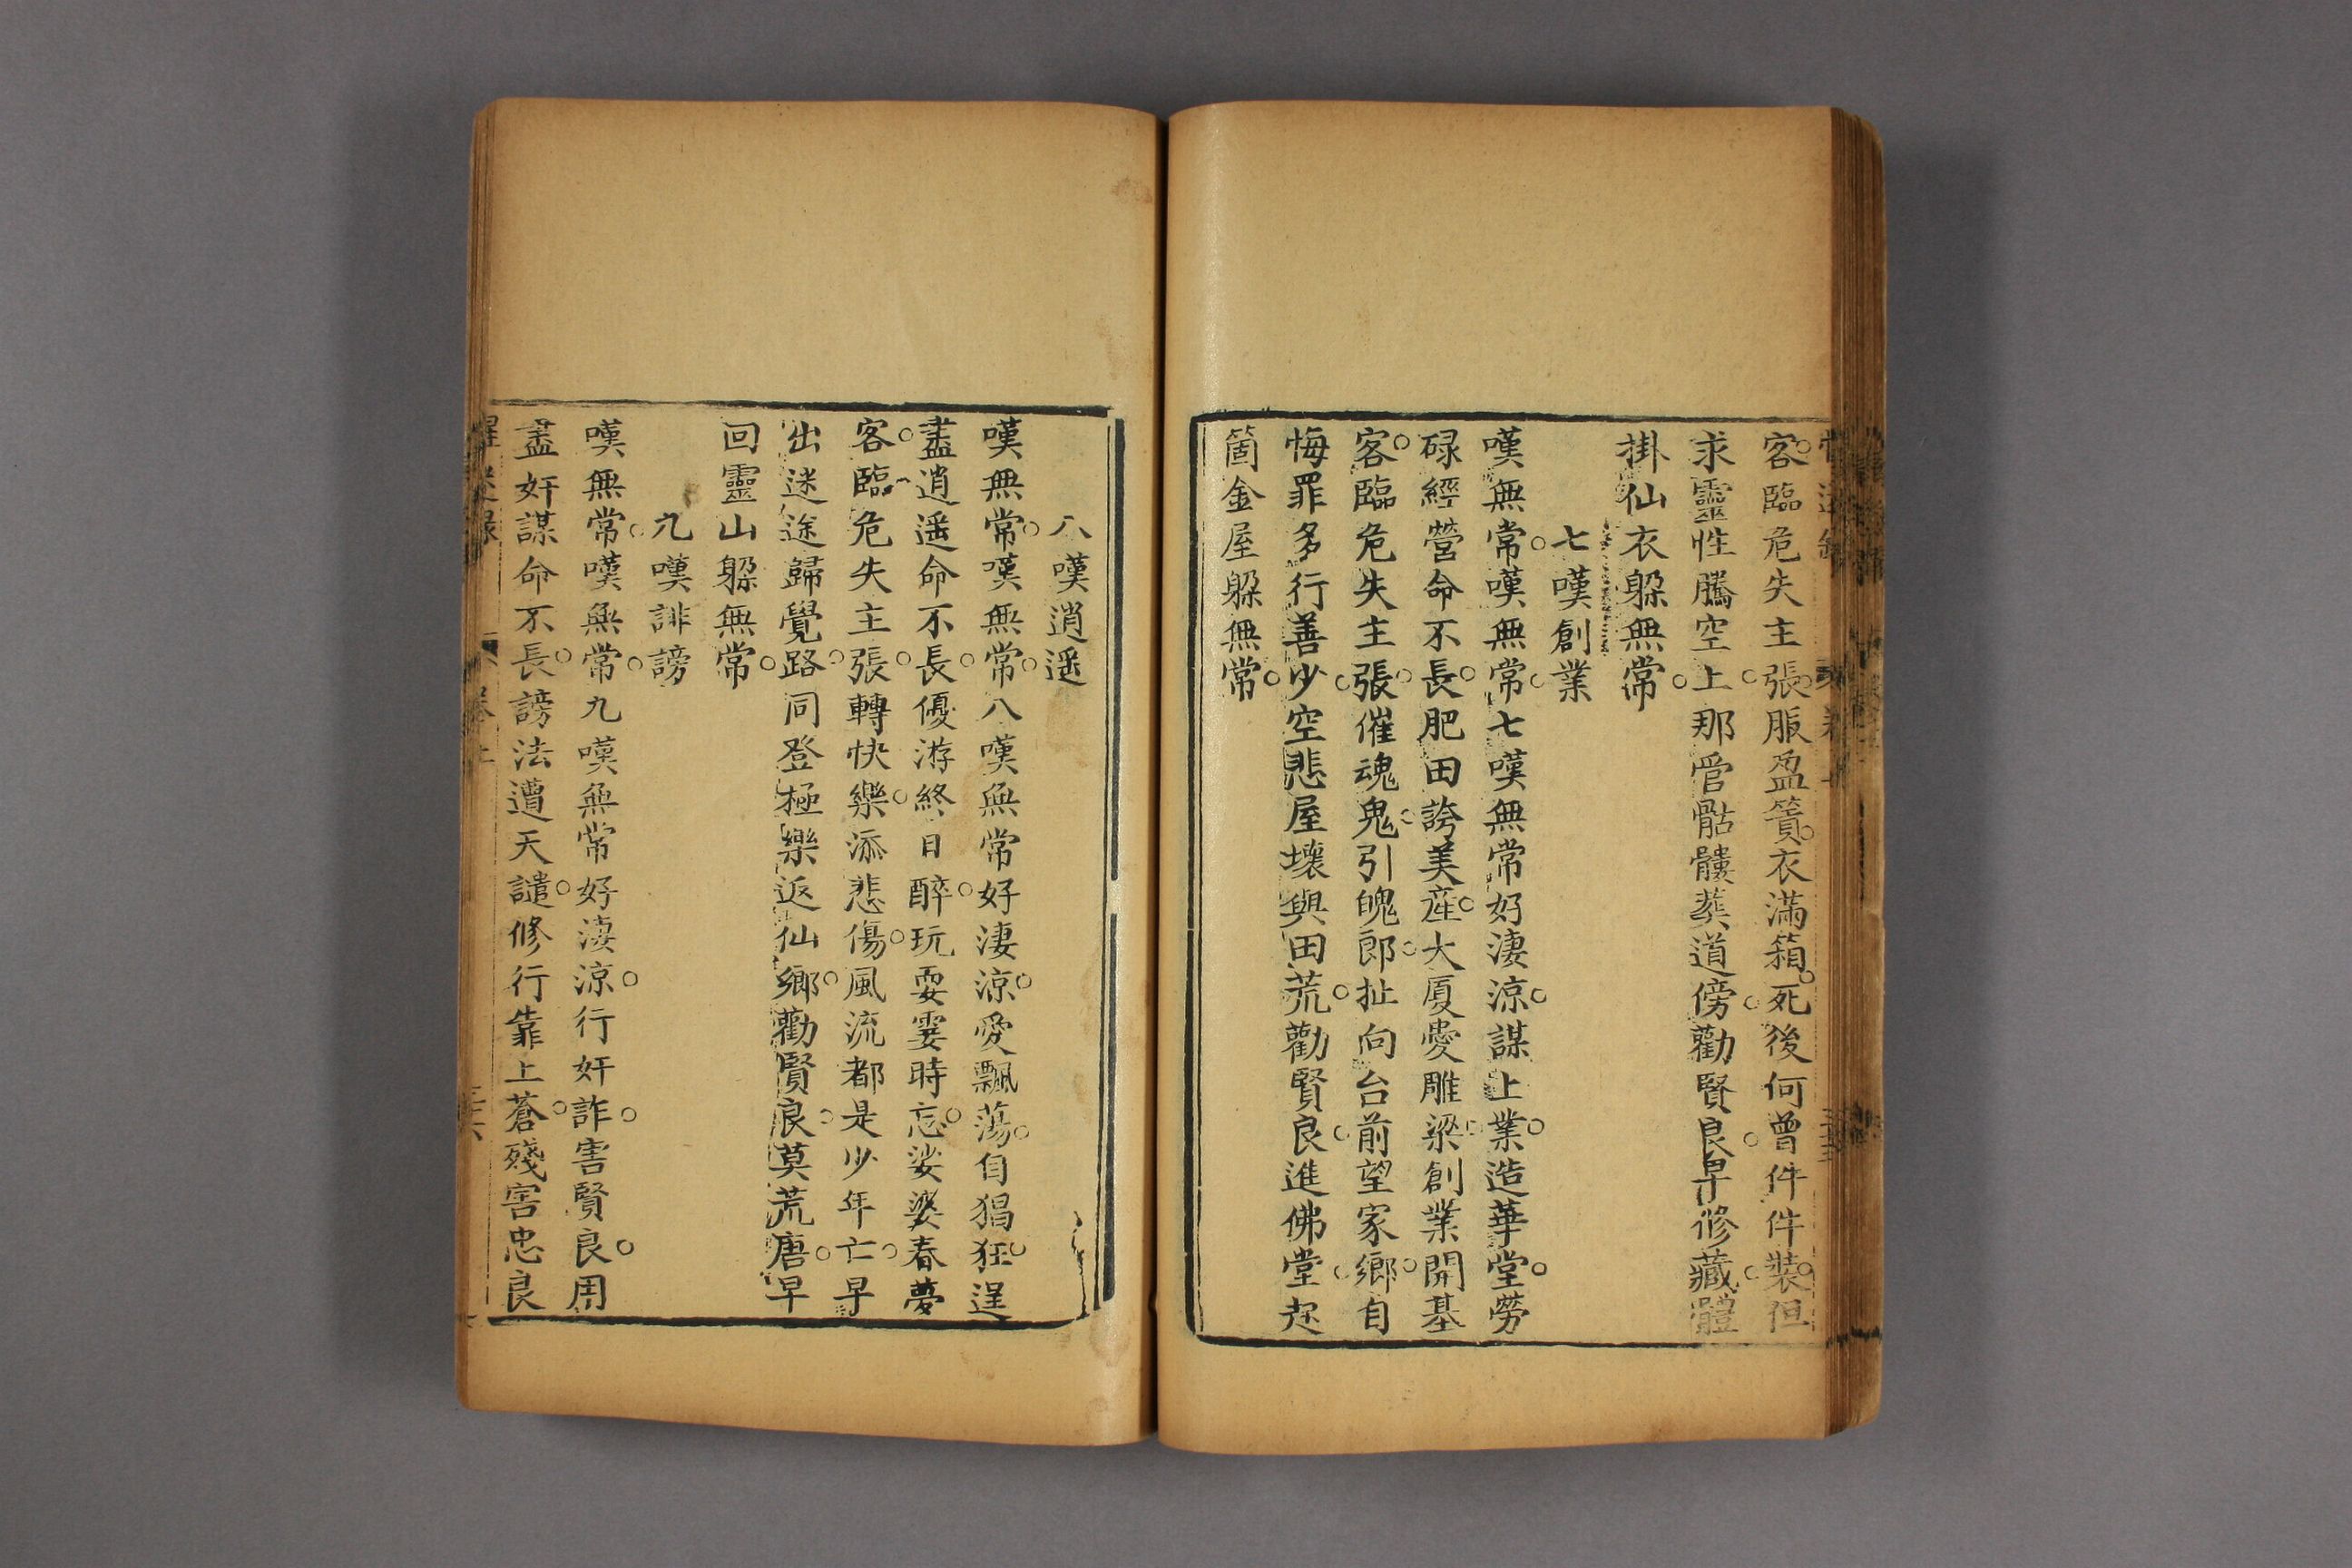 客。臨危失主張。服盈簣。衣滿箱。死後何曾件件裝。但
求靈性騰空上。那管骷髏葬道傍。勸賢良。早修藏體。
掛仙衣躲無常。
七嘆創業
嘆無常。嘆無常。七嘆無常好淒涼。謀上業。造華堂。勞
碌經營命不長。肥田誇美産。大厦愛雕梁。創業開基
客。臨危失主張。催魂鬼。引魄郎。扯向台前望家鄉。自
悔罪多行善少。空悲屋壞與田荒。勸賢良。進佛堂。起
箇金屋躲無常。
八嘆逍遥
嘆無常。嘆無常。八嘆無常好淒涼。愛飄蕩。自猖狂。逞
盡逍遥命不長。優游終日醉。玩耍霎時忘。娑婆春夢
客。臨危失主張。轉快樂。添悲傷。風流都是少年亡。早
出迷途歸覺路。同登極樂返仙鄉。勸賢良。莫荒唐。早
回靈山躲無常。
九嘆誹謗
嘆無常。嘆無常。九嘆無常好淒涼。行奸詐。害賢良。用
盡奸謀命不長。謗法遭天譴。修行靠上蒼。殘害忠良
醒迷録 卷上